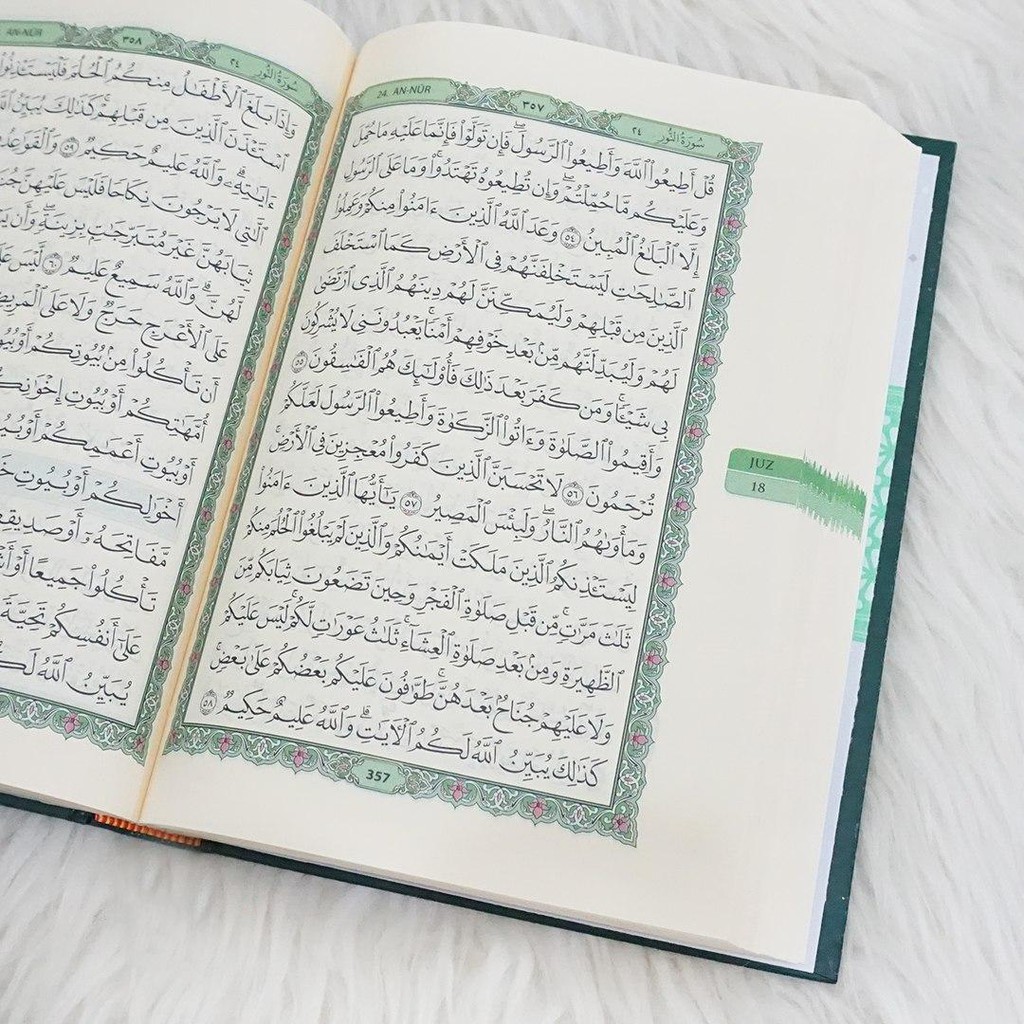 24. AN-NŪR
٣٥٧
٢٤ سُورَةُ النُّور
قُلْ أَطِيعُوا۟ ٱللَّهَ وَأَطِيعُوا۟ ٱلرَّسُولَ ۖ فَإِن تَوَلَّوْا۟ فَإِنَّمَا عَلَيْهِ مَا حُمِّلَ
وَعَلَيْكُم مَّا حُمِّلْتُمْ ۖ وَإِن تُطِيعُوهُ تَهْتَدُوا۟ ۚ وَمَا عَلَى ٱلرَّسُولِ
إِلَّا ٱلْبَلَٰغُ ٱلْمُبِينُ ٥٤ وَعَدَ ٱللَّهُ ٱلَّذِينَ ءَامَنُوا۟ مِنكُمْ وَعَمِلُوا۟
ٱلصَّٰلِحَٰتِ لَيَسْتَخْلِفَنَّهُمْ فِى ٱلْأَرْضِ كَمَا ٱسْتَخْلَفَ
ٱلَّذِينَ مِن قَبْلِهِمْ وَلَيُمَكِّنَنَّ لَهُمْ دِينَهُمُ ٱلَّذِى ٱرْتَضَىٰ
لَهُمْ وَلَيُبَدِّلَنَّهُم مِّنۢ بَعْدِ خَوْفِهِمْ أَمْنًا ۚ يَعْبُدُونَنِى لَا يُشْرِكُونَ
بِى شَيْـًٔا ۚ وَمَن كَفَرَ بَعْدَ ذَٰلِكَ فَأُو۟لَٰٓئِكَ هُمُ ٱلْفَٰسِقُونَ ٥٥
وَأَقِيمُوا۟ ٱلصَّلَوٰةَ وَءَاتُوا۟ ٱلزَّكَوٰةَ وَأَطِيعُوا۟ ٱلرَّسُولَ لَعَلَّكُمْ
تُرْحَمُونَ ٥٦ لَا تَحْسَبَنَّ ٱلَّذِينَ كَفَرُوا۟ مُعْجِزِينَ فِى ٱلْأَرْضِ ۚ
وَمَأْوَىٰهُمُ ٱلنَّارُ ۖ وَلَبِئْسَ ٱلْمَصِيرُ ٥٧ يَٰٓأَيُّهَا ٱلَّذِينَ ءَامَنُوا۟
لِيَسْتَـْٔذِنكُمُ ٱلَّذِينَ مَلَكَتْ أَيْمَٰنُكُمْ وَٱلَّذِينَ لَمْ يَبْلُغُوا۟ ٱلْحُلُمَ مِنكُمْ
ثَلَٰثَ مَرَّٰتٍ ۚ مِّن قَبْلِ صَلَوٰةِ ٱلْفَجْرِ وَحِينَ تَضَعُونَ ثِيَابَكُم مِّنَ
ٱلظَّهِيرَةِ وَمِنۢ بَعْدِ صَلَوٰةِ ٱلْعِشَآءِ ۚ ثَلَٰثُ عَوْرَٰتٍ لَّكُمْ ۚ لَيْسَ عَلَيْكُمْ
وَلَا عَلَيْهِمْ جُنَاحٌۢ بَعْدَهُنَّ ۚ طَوَّٰفُونَ عَلَيْكُم بَعْضُكُمْ عَلَىٰ بَعْضٍ ۚ
كَذَٰلِكَ يُبَيِّنُ ٱللَّهُ لَكُمُ ٱلْءَايَٰتِ ۗ وَٱللَّهُ عَلِيمٌ حَكِيمٌ ٥٨
357
JUZ
18
AN-NŪR
٣٥٨
٢٤ سُورَةُ النُّور
وَإِذَا بَلَغَ ٱلْأَطْفَٰلُ مِنكُمُ ٱلْحُلُمَ فَلْيَسْتَـْٔذِنُوا۟
ٱسْتَـْٔذَنَ ٱلَّذِينَ مِن قَبْلِهِمْ ۚ كَذَٰلِكَ يُبَيِّنُ
ءَايَٰتِهِۦ ۗ وَٱللَّهُ عَلِيمٌ حَكِيمٌ ٥٩ وَٱلْقَوَٰعِدُ
ٱلَّٰتِى لَا يَرْجُونَ نِكَاحًا فَلَيْسَ عَلَيْهِنَّ
ثِيَابَهُنَّ غَيْرَ مُتَبَرِّجَٰتٍۭ بِزِينَةٍ ۖ وَأَن
لَّهُنَّ ۗ وَٱللَّهُ سَمِيعٌ عَلِيمٌ ٦٠ لَّيْسَ
عَلَى ٱلْأَعْرَجِ حَرَجٌ وَلَا عَلَى ٱلْمَرِيضِ
أَن تَأْكُلُوا۟ مِنۢ بُيُوتِكُمْ أَوْ
أُمَّهَٰتِكُمْ أَوْ بُيُوتِ إِخْوَٰنِكُمْ
أَوْ بُيُوتِ أَعْمَٰمِكُمْ أَوْ
أَخْوَٰلِكُمْ أَوْ بُيُوتِ
مَّفَاتِحَهُۥٓ أَوْ صَدِيقِكُمْ
تَأْكُلُوا۟ جَمِيعًا أَوْ
عَلَىٰٓ أَنفُسِكُمْ تَحِيَّةً
يُبَيِّنُ ٱللَّهُ لَكُمُ